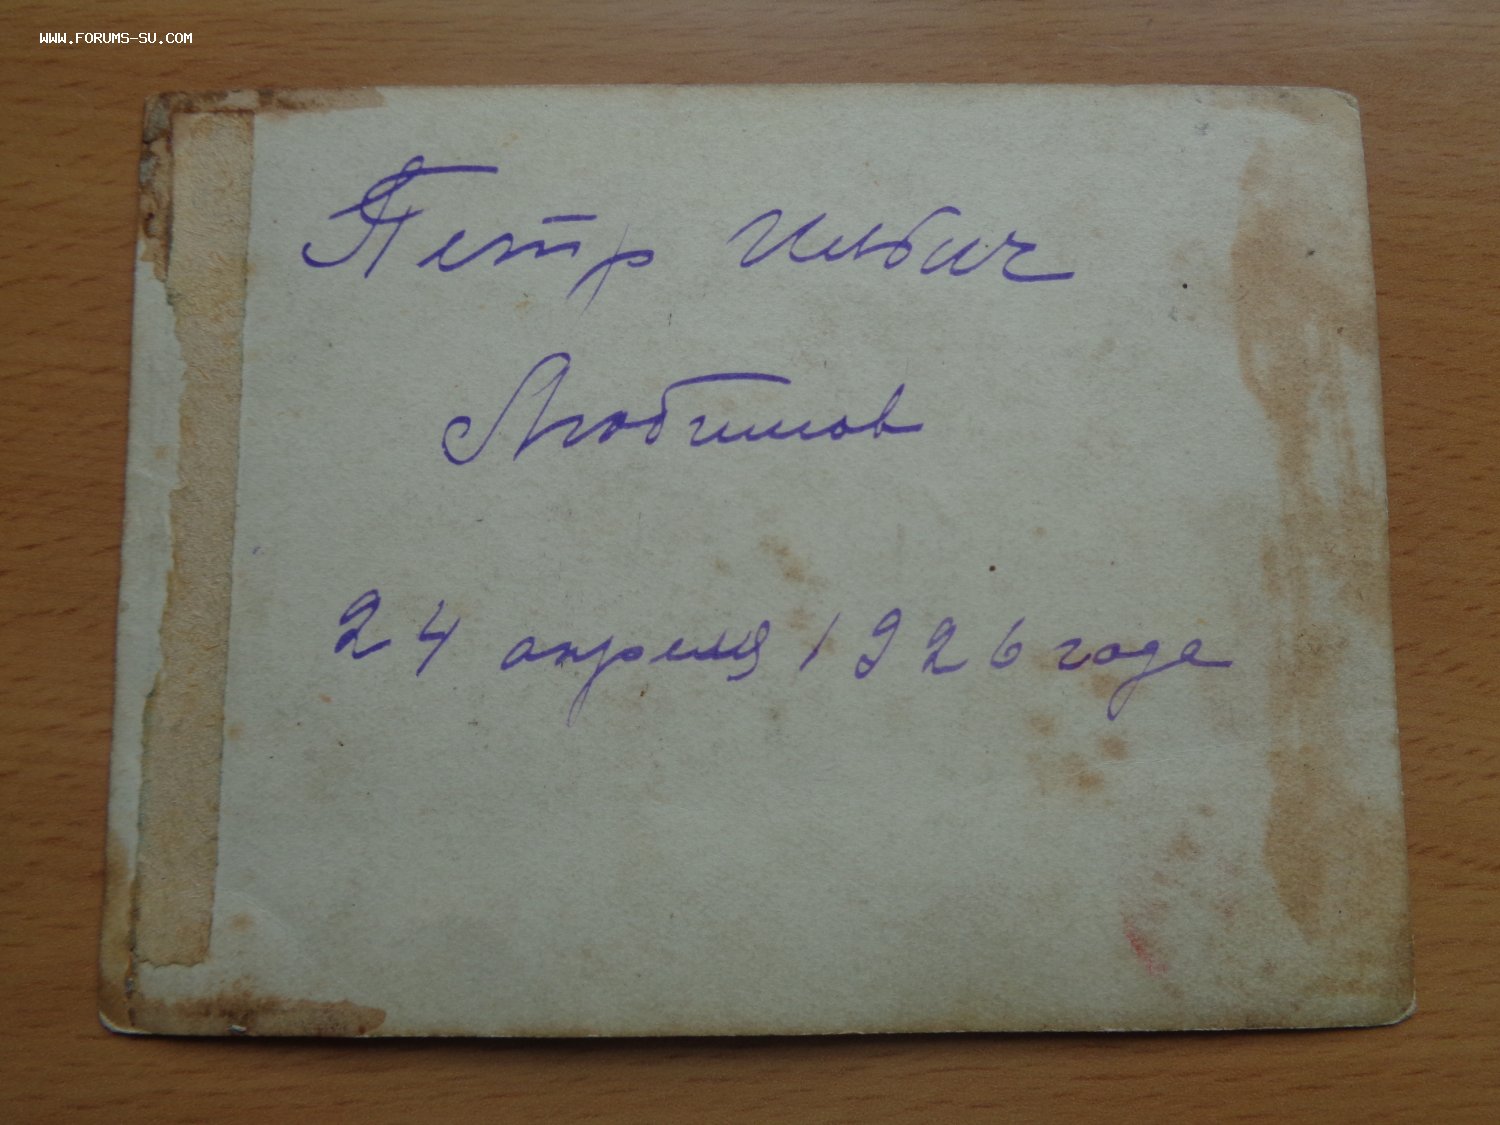 WWW.FORUMS-SU.COM
Петр Ильич
Любимов
24 апреля 1926 года